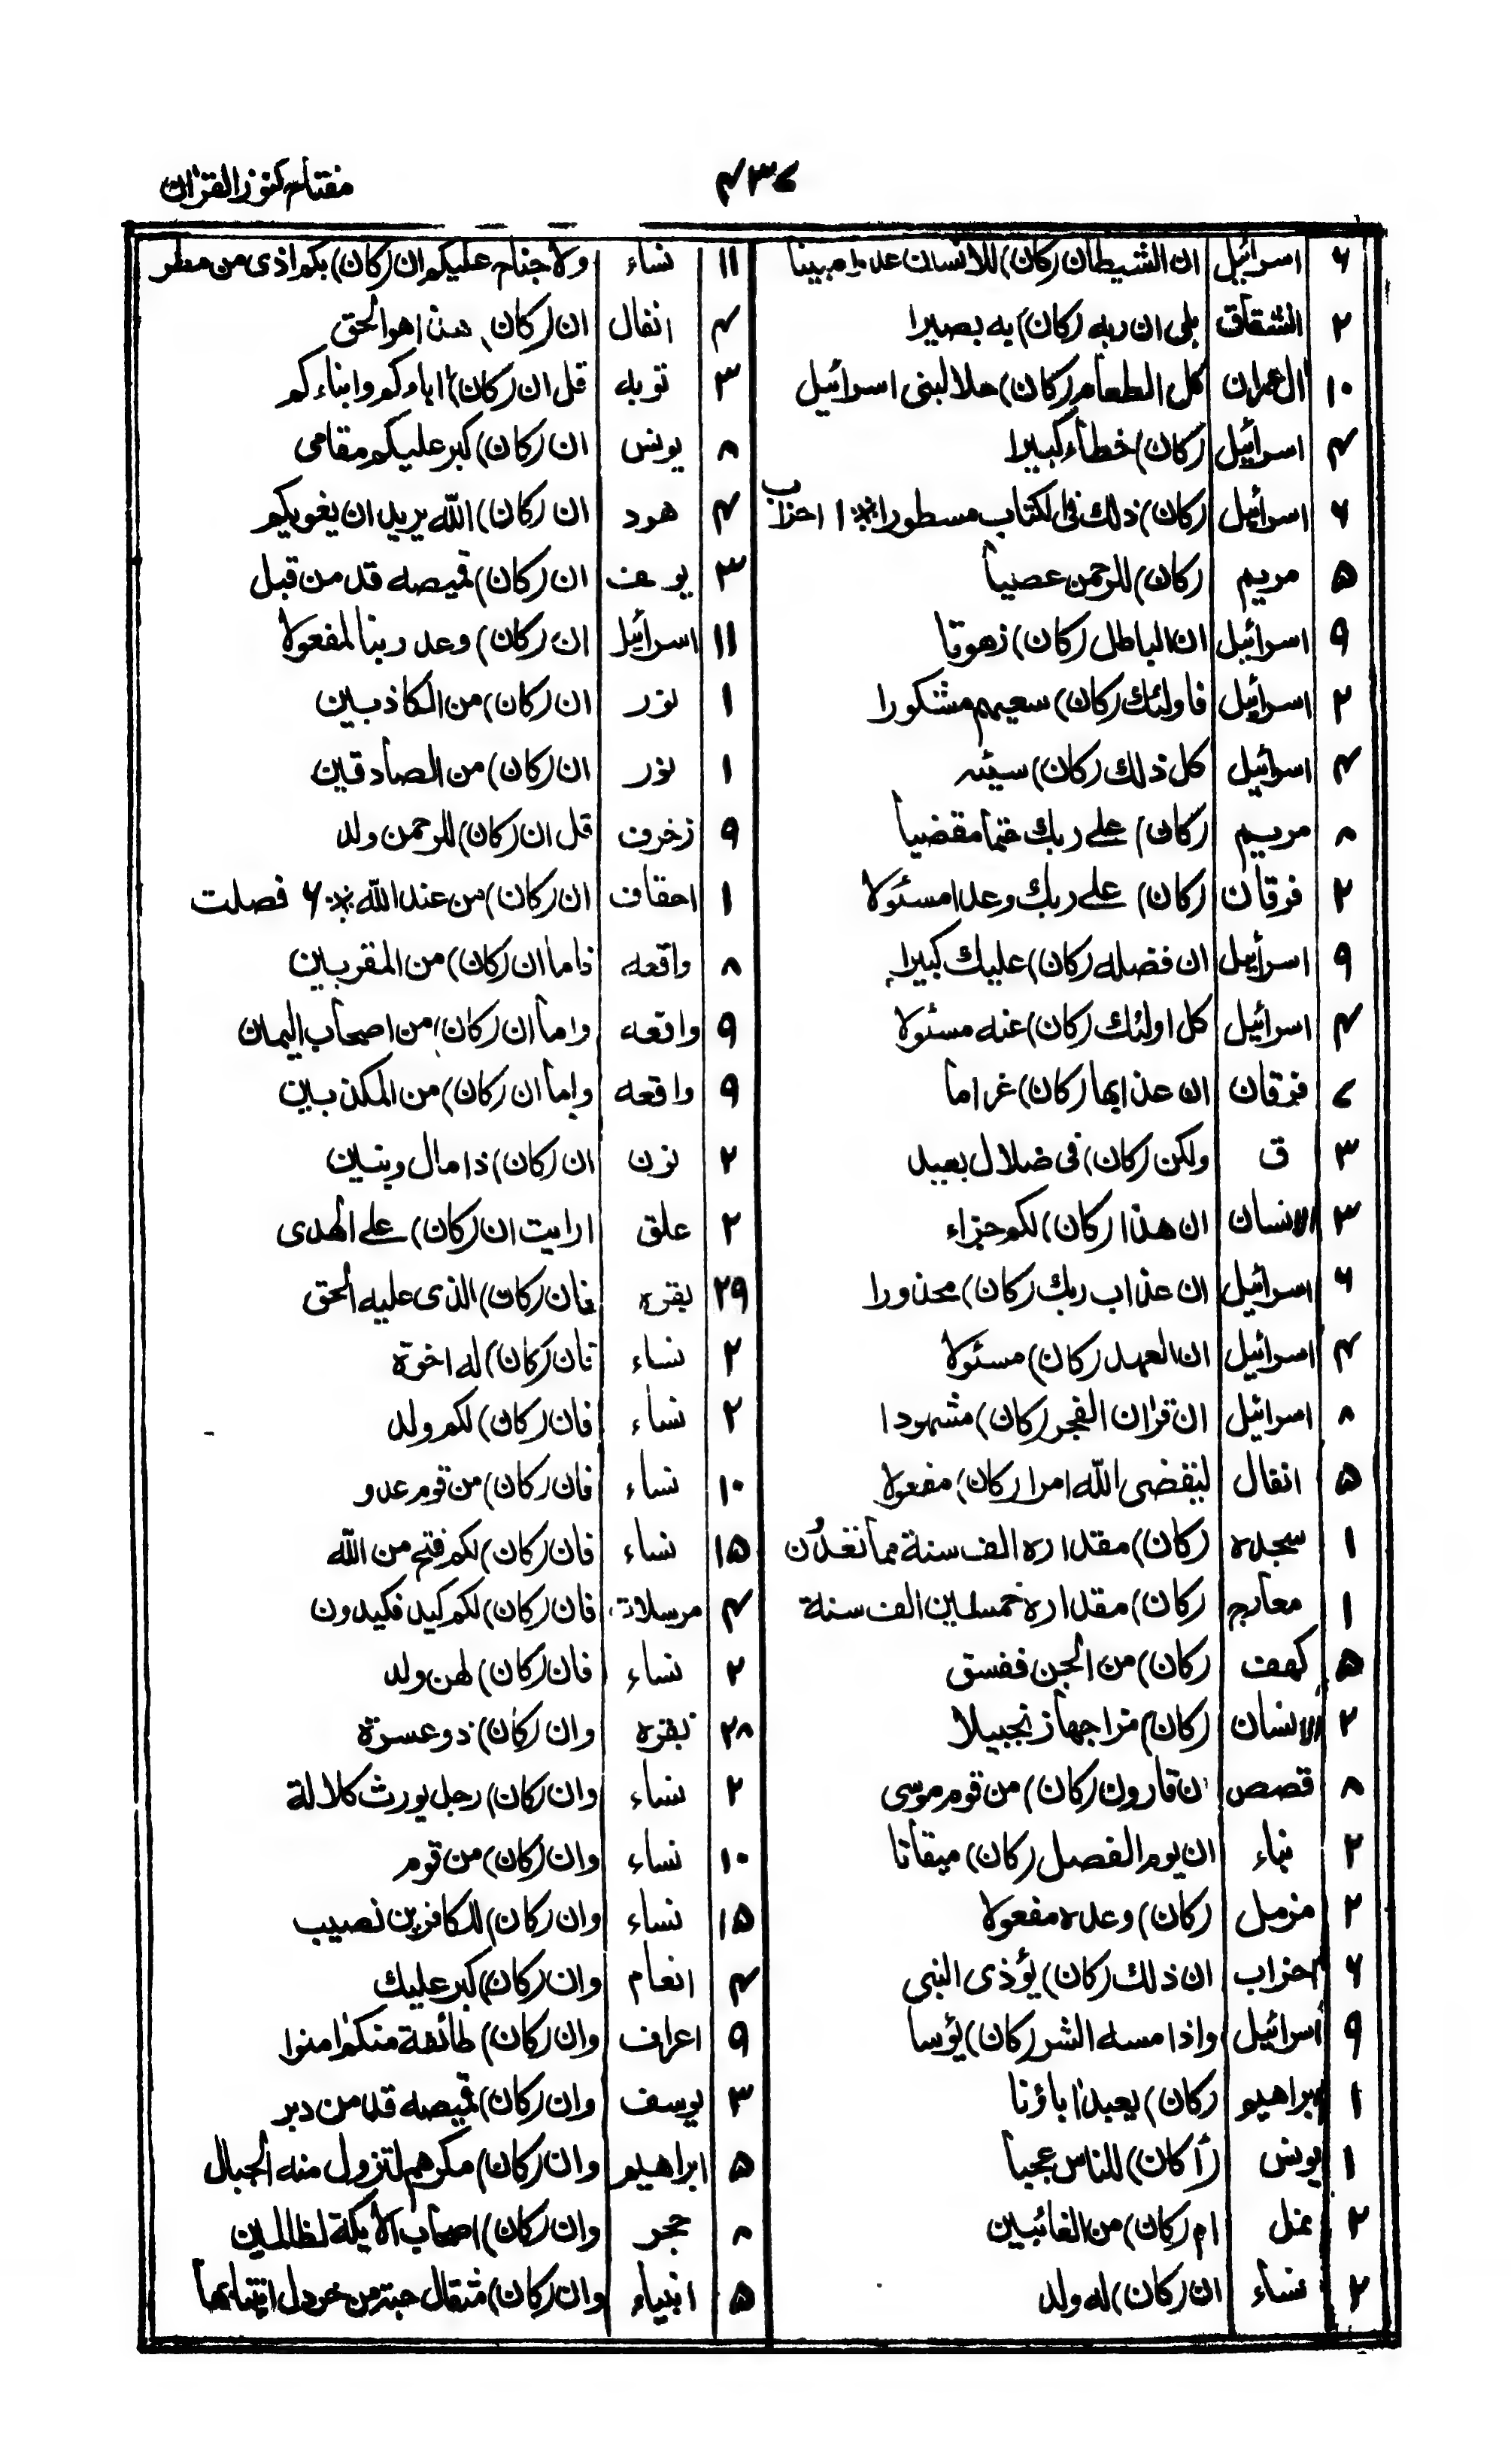 مفتاح کنوز القرآن
۴۳۷
۶ اسرائیل ان الشیطان (کان) للانسان عدوا مبینا
۲ انشقاق بلی ان ربه (کان) به بصیرا
۱۰ آل عمران کل الطعام (کان) حلا لبنی اسرائیل
۴ اسرائیل (کان) خطأ کبیرا
۶ اسرائیل (کان) ذلك فی الکتاب مسطورا * ۱ احزاب
۵ مریم (کان) للرحمن عصیا
۹ اسرائیل ان الباطل (کان) زهوقا
۲ اسرائیل فاولئك (کان) سعیهم مشکورا
۴ اسرائیل کل ذلك (کان) سیئه
۸ مریم (کان) علی ربك حتما مقضیا
۲ فرقان (کان) علی ربك وعدا مسئولا
۹ اسرائیل ان فضله (کان) علیك کبیرا
۴ اسرائیل کل اولئك (کان) عنه مسئولا
۷ فرقان ان عذابها (کان) غراما
۳ ق ولکن (کان) فی ضلال بعید
۳ الانسان ان هذا (کان) لکم جزاء
۶ اسرائیل ان عذاب ربك (کان) محذورا
۴ اسرائیل ان العهد (کان) مسئولا
۸ اسرائیل ان قرآن الفجر (کان) مشهودا
۵ انفال لیقضی الله امرا (کان) مفعولا
۱ سجده (کان) مقداره الف سنة مما تعدون
۱ معارج (کان) مقداره خمسین الف سنة
۵ کهف (کان) من الجن ففسق
۲ الانسان (کان) مزاجها زنجبیلا
۸ قصص ان قارون (کان) من قوم موسی
۲ نباء ان یوم الفصل (کان) میقاتا
۲ مزمل (کان) وعده مفعولا
۶ احزاب ان ذلك (کان) یؤذی النبی
۹ اسرائیل واذا مسه الشر (کان) یؤسا
۱ ابراهیم (کان) یعبد اباؤنا
۱ یونس (أکان) للناس عجبا
۲ نمل ام (کان) من الغائبین
۲ نساء ان (کان) له ولد
۱۱ نساء ولا جناح علیکم ان (کان) بکم اذی من مطر
۴ انفال ان (کان) هذا هو الحق
۳ توبه قل ان (کان) اباؤکم وابناءکم
۸ یونس ان (کان) کبر علیکم مقامی
۴ هود ان (کان) الله یرید ان یغویکم
۳ یوسف ان (کان) قمیصه قد من قبل
۱۱ اسرائیل ان (کان) وعد ربنا لمفعولا
۱ نور ان (کان) من الکاذبین
۱ نور ان (کان) من الصادقین
۹ زخرف قل ان (کان) للرحمن ولد
۱ احقاف ان (کان) من عند الله * ۶ فصلت
۸ واقعه فاما ان (کان) من المقربین
۹ واقعه واما ان (کان) من اصحاب الیمان
۹ واقعه واما ان (کان) من المکذبین
۲ نون ان (کان) ذا مال وبنین
۲ علق ارایت ان (کان) علی الهدی
۲۹ بقره فان (کان) الذی علیه الحق
۲ نساء فان (کان) له اخوة
۲ نساء فان (کان) لکم ولد
۱۰ نساء فان (کان) من قوم عدو
۱۵ نساء فان (کان) لکم فتح من الله
۴ مرسلات فان (کان) لکم کید فکیدون
۲ نساء فان (کان) لهن ولد
۲۸ بقره وان (کان) ذو عسرة
۲ نساء وان (کان) رجل یورث کلالة
۱۰ نساء وان (کان) من قوم
۱۵ نساء وان (کان) للکافرین نصیب
۴ انعام وان (کان) کبر علیك
۹ اعراف وان (کان) طائفة منکم امنوا
۳ یوسف وان (کان) قمیصه قد من دبر
۵ ابراهیم وان (کان) مکرهم لتزول منه الجبال
۸ حجر وان (کان) اصحاب الأیکة لظالمین
۵ انبیاء وان (کان) مثقال حبة من خردل اتینا بها